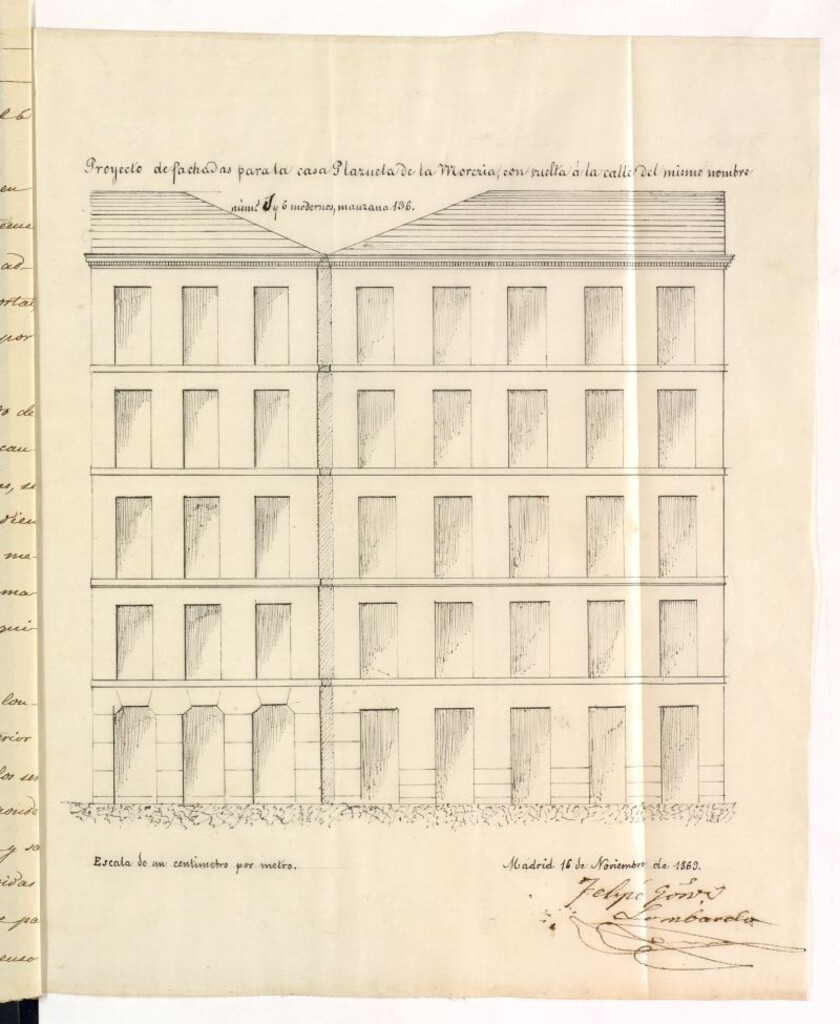 Proyecto de fachadas para la casa Plazuela de la Moreria, con vuelta á la calle del mismo nombre
y 6 modernos, manzana 136.
Escala de un centimetro por metro.
Madrid 16 de Noviembre de 1863.
Felipe
Lombardo
en
ad-
por
de
cau-
me-
ma
qui-
lou-
erior
y so
pa